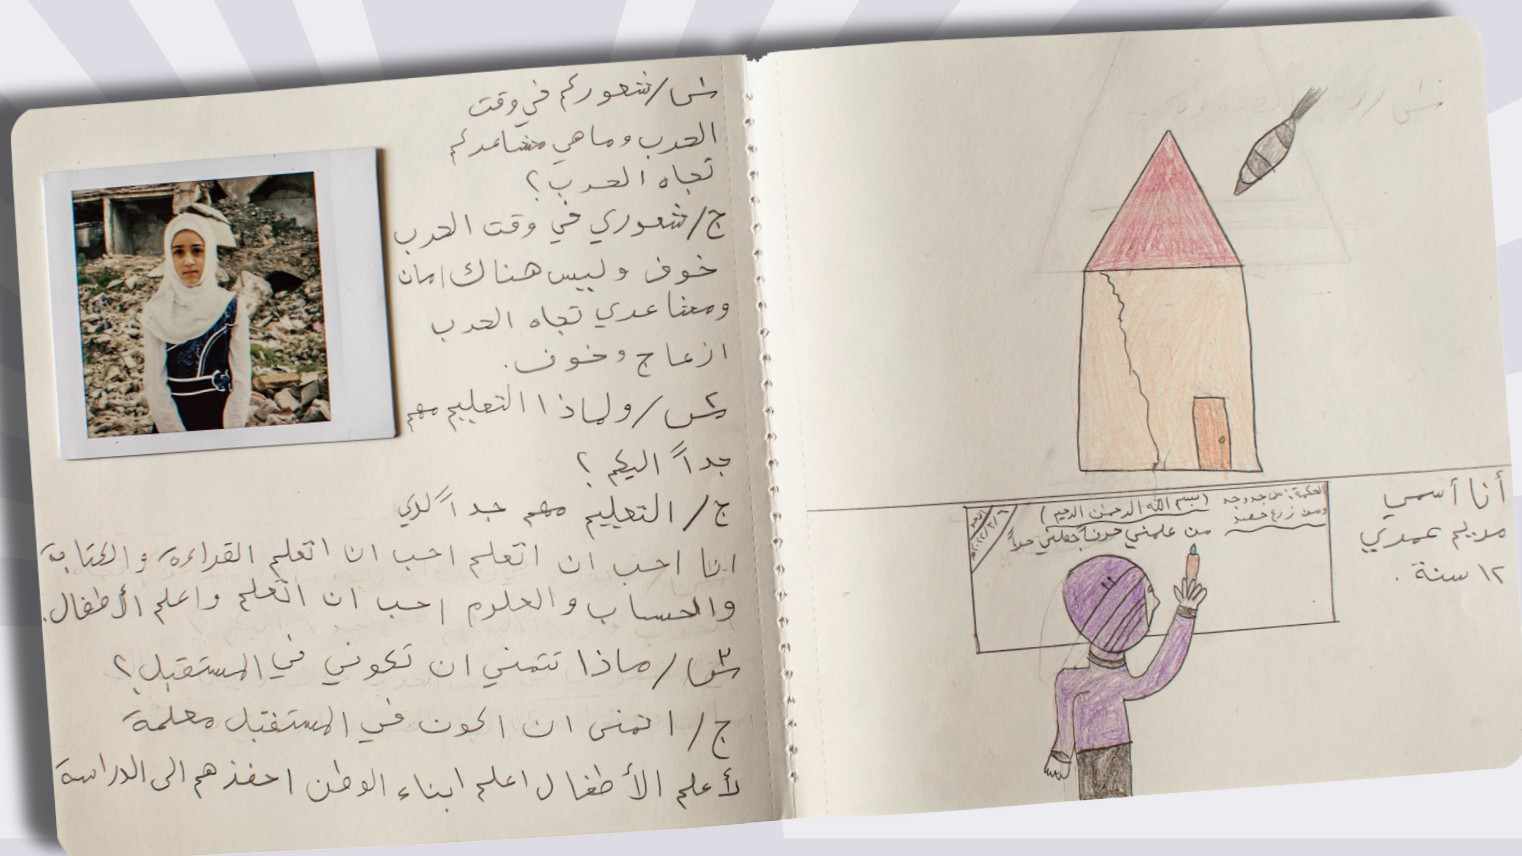 س١/شعوركم في وقت
الحرب وما هي مشاعركم
تجاه الحرب؟
ج/شعوري في وقت الحرب
خوف وليس هناك امان
ومشاعري تجاه الحرب
ازعاج وخوف.
س٢/ولماذا التعليم مهم
جداً اليكم؟
ج/التعليم مهم جداً لدي
انا احب ان اتعلم احب ان اتعلم القراءة والكتابة
والحساب والعلوم احب ان اتعلم واعلم الأطفال.
س٣/ماذا تتمني ان تكوني في المستقبل؟
ج/اتمنى ان اكون في المستقبل معلمة
لأعلم الأطفال اعلم ابناء الوطن احفذهم الى الدراسة
الحكمة: من جد وجد
ومن زرع حصد
(بسم الله الرحمن الرحيم)
من علمني حرفاً
أنا أسمي
مريم عمري
١٢ سنة.